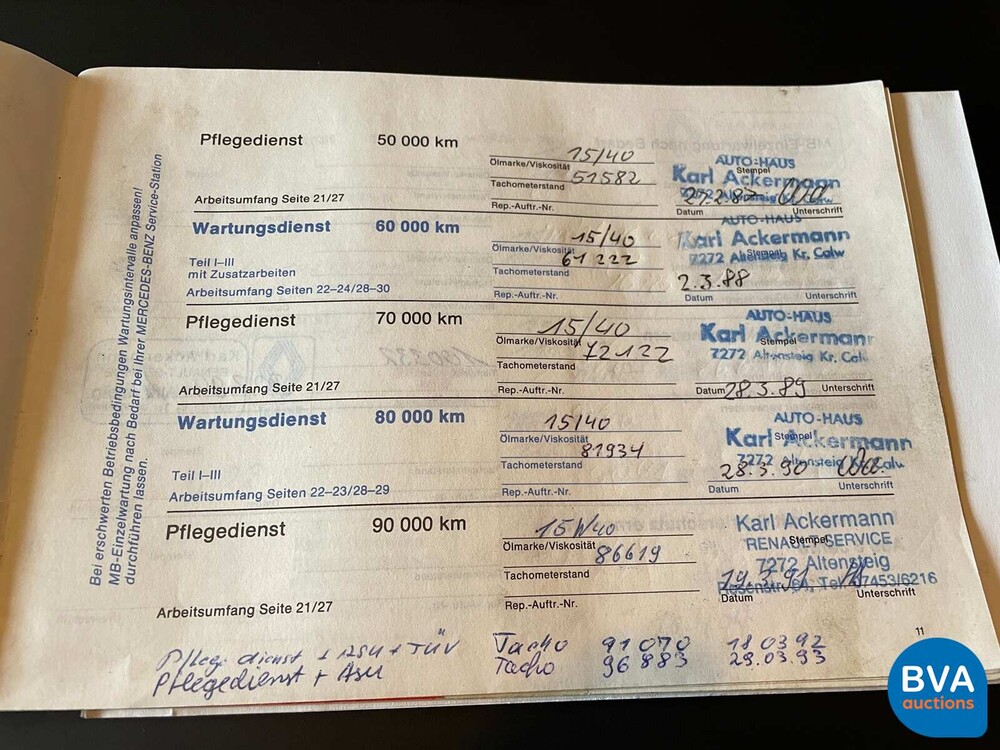 Bei erschwerten Betriebsbedingungen Wartungsintervalle anpassen!
MB-Einzelwartung nach Bedarf bei Ihrer MERCEDES-BENZ Service-Station
durchführen lassen.
Pflegedienst 50 000 km
15/40
Ölmarke/Viskosität
51582
Tachometerstand
Rep.-Auftr.-Nr.
Arbeitsumfang Seite 21/27
AUTO-HAUS
Stempel
Karl Ackermann
7272
Datum Unterschrift
Wartungsdienst 60 000 km
Teil I–III
mit Zusatzarbeiten
Arbeitsumfang Seiten 22–24/28–30
15/40
Ölmarke/Viskosität
61 222
Tachometerstand
Rep.-Auftr.-Nr.
AUTO-HAUS
Karl Ackermann
Stempel
7272 Altensteig Kr. Calw
2.3.88
Datum Unterschrift
Pflegedienst 70 000 km
15/40
Ölmarke/Viskosität
72122
Tachometerstand
Rep.-Auftr.-Nr.
Arbeitsumfang Seite 21/27
AUTO-HAUS
Karl Ackermann
Stempel
7272 Altensteig Kr. Calw
Datum 28.3.89 Unterschrift
Wartungsdienst 80 000 km
Teil I–III
Arbeitsumfang Seiten 22–23/28–29
15/40
Ölmarke/Viskosität
81934
Tachometerstand
Rep.-Auftr.-Nr.
AUTO-HAUS
Karl Ackermann
Stempel
7272 Altensteig Kr. Calw
28.3.90
Datum Unterschrift
Pflegedienst 90 000 km
15W40
Ölmarke/Viskosität
86619
Tachometerstand
Rep.-Auftr.-Nr.
Arbeitsumfang Seite 21/27
Karl Ackermann
RENAULT-SERVICE
Stempel
7272 Altensteig
19.3.91
Tel. 07453/6216
Datum Unterschrift
11
Pflegedienst + ASU + TÜV Tacho 91 070 18 03 92
Pflegedienst + ASU Tacho 96 883 29.03.93
BVA
auctions